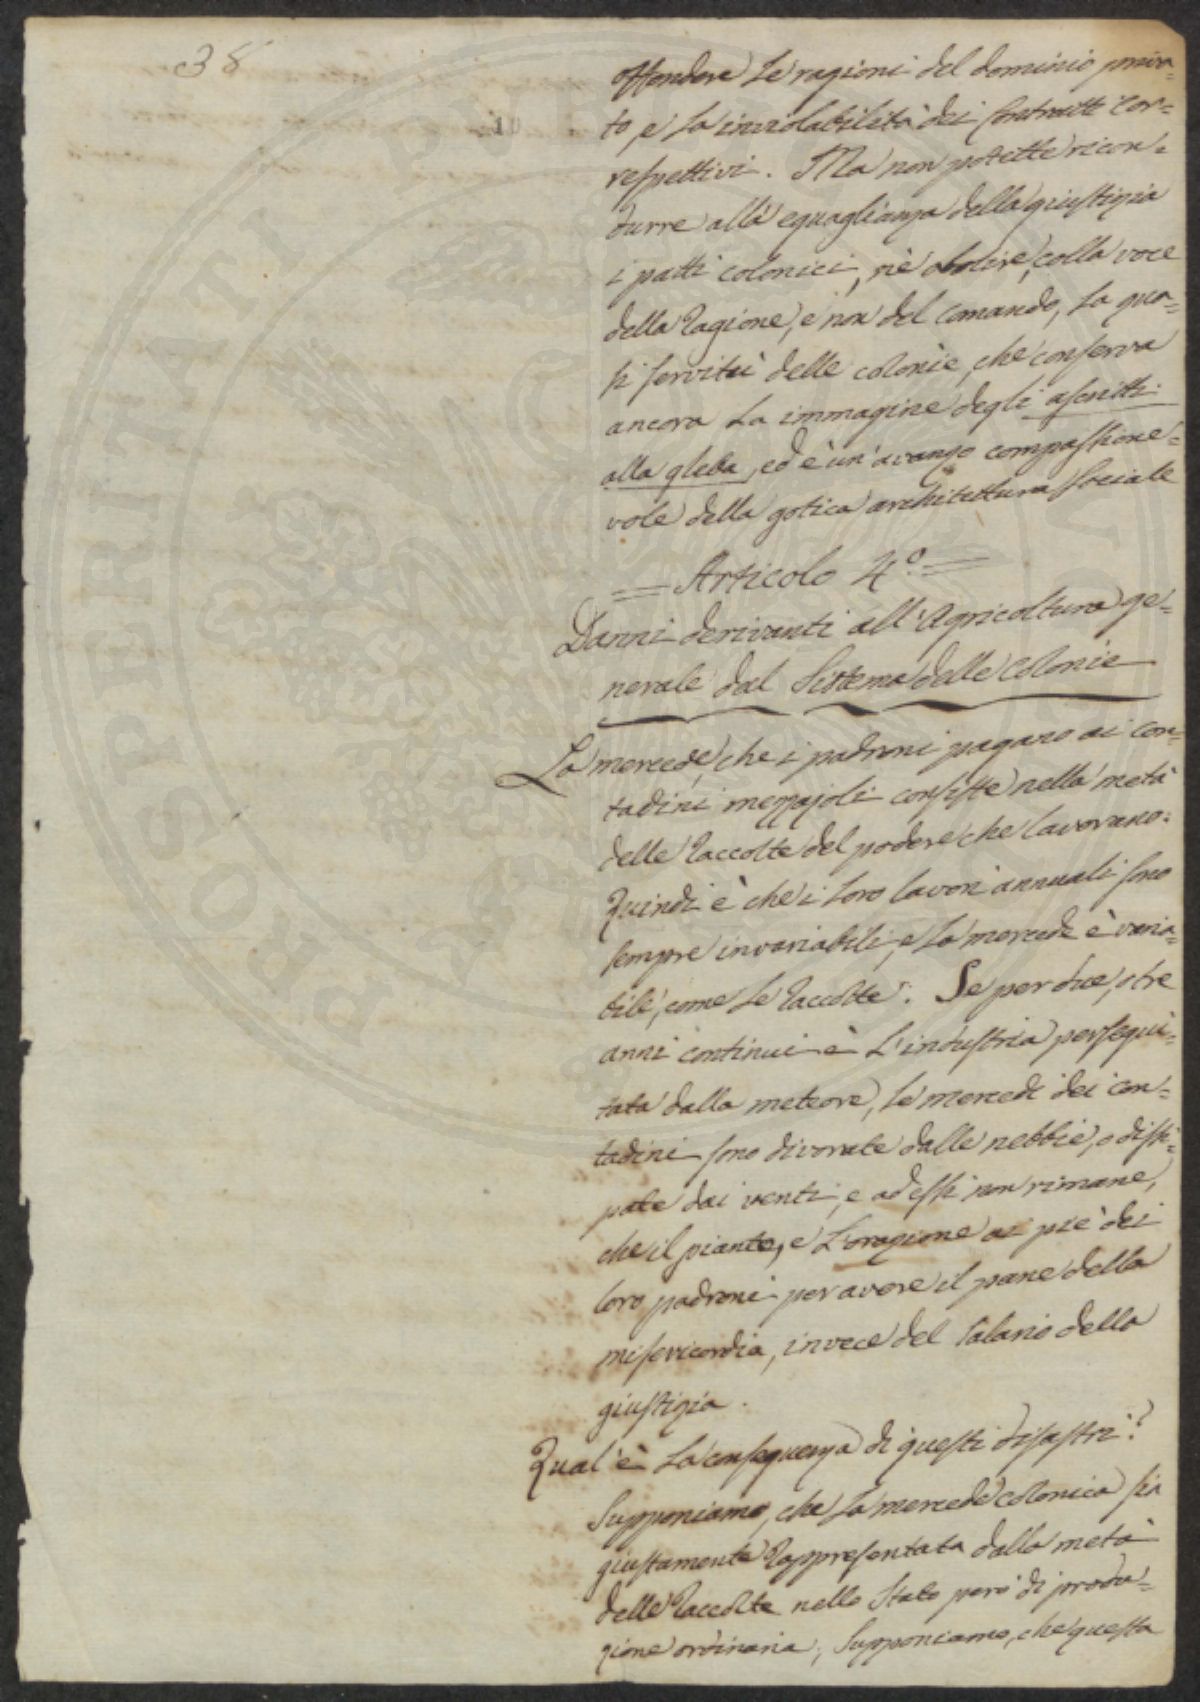 38
offendere le ragioni del dominio priva=
to, e la inviolabilità dei Contratti Cor=
respettivi. Ma non potette ricon=
durre alla eguaglianza della giustizia
i patti colonici, nè abolire, colla voce
della Ragione, e non del Comando, la qua=
si servitù delle colonie, che conserva
ancora la immagine degli ascritti
alla gleba, ed è un'avanzo compassione=
vole della gotica architettura sociale
= Articolo 4.º =
Danni derivanti all'Agricoltura ge=
nerale dal Sistema delle Colonie
La mercede, che i padroni pagano ai con=
tadini mezzajoli consiste nella metà
delle Raccolte del podere che lavorano.
Quindi è che i loro lavori annuali sono
sempre invariabili, e la mercede è varia=
bile, come le Raccolte. Se per due, o tre
anni continui è l'industria persegui=
tata dalla meteore, le mercedi dei con=
tadini sono divorate dalle nebbie, o dissi=
pate dai venti, e ad essi non rimane,
che il pianto, e l'orazione ai piè dei
loro padroni per avere il pane della
misericordia, invece del Salario della
giustizia.
Qual'è la conseguenza di questi disastri?
Supponiamo, che la mercede colonica sia
giustamente Rappresentata dalla metà
delle Raccolte nello Stato però di produ=
zione ordinaria; Supponiamo, che questa
POSTERITATI